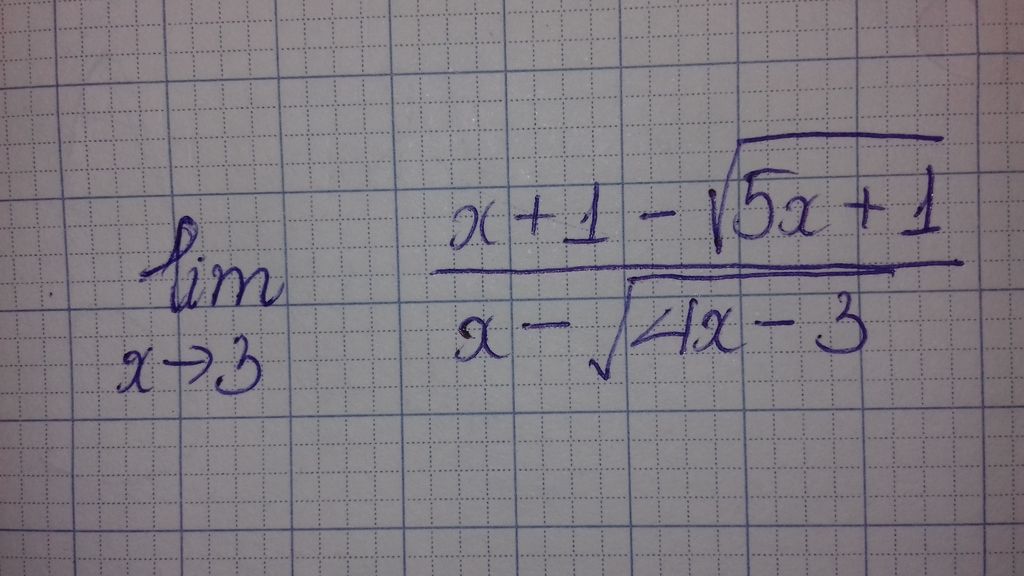 lim x→3 (x + 1 − √(5x + 1)) / (x − √(4x − 3))